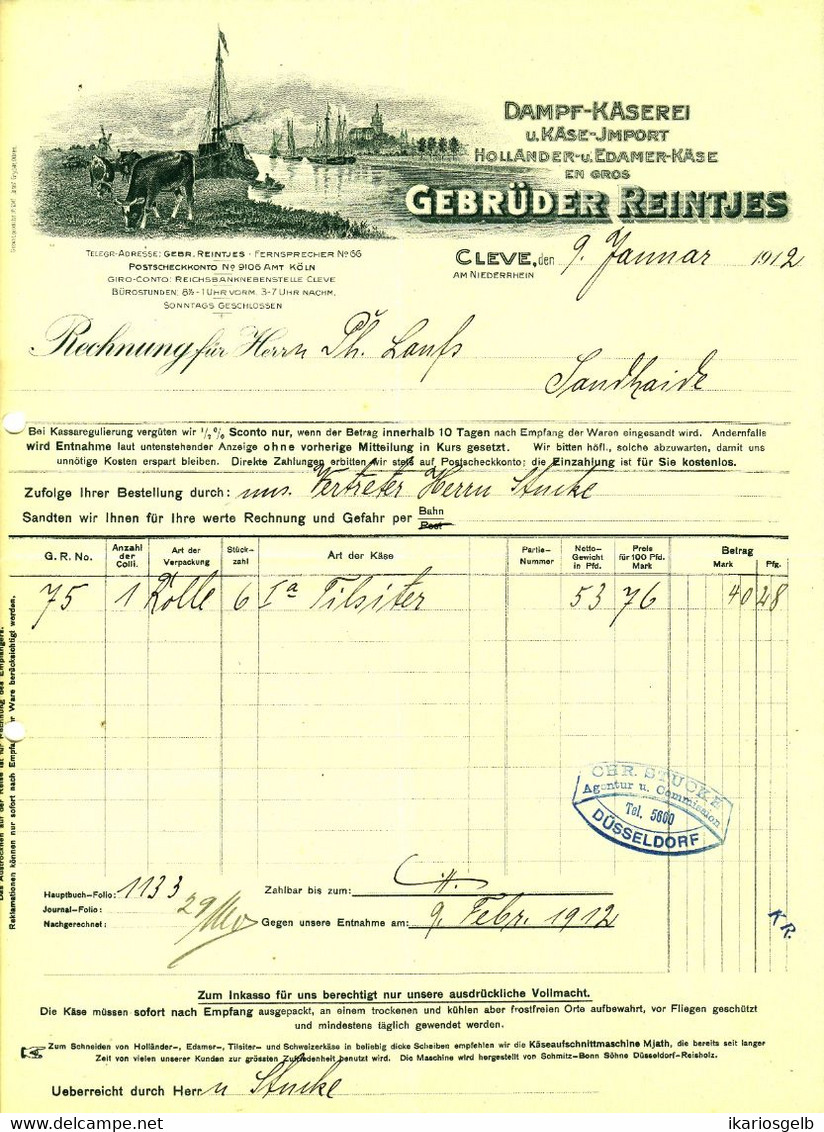 DAMPF-KÄSEREI
U. KÄSE-JMPORT
HOLLÄNDER-U. EDAMER-KÄSE
EN GROS
GEBRÜDER REINTJES
TELEGR-ADRESSE: GEBR. REINTJES · FERNSPRECHER No 66
POSTSCHECKKONTO No 9106 AMT KÖLN
GIRO-CONTO: REICHSBANKNEBENSTELLE CLEVE
BÜROSTUNDEN: 8½-1 UHR VORM. 3-7 UHR NACHM.
SONNTAGS GESCHLOSSEN
CLEVE, den 9. Januar 1912
AM NIEDERRHEIN
Rechnung für Herrn Ph. Laufs
Sandhaide
Bei Kassaregulierung vergüten wir ½ % Sconto nur, wenn der Betrag innerhalb 10 Tagen nach Empfang der Waren eingesandt wird. Andernfalls
wird Entnahme laut untenstehender Anzeige ohne vorherige Mitteilung in Kurs gesetzt. Wir bitten höfl., solche abzuwarten, damit uns
unnötige Kosten erspart bleiben. Direkte Zahlungen erbitten wir stets auf Postscheckkonto; die Einzahlung ist für Sie kostenlos.
Zufolge Ihrer Bestellung durch: uns. Vertreter Herrn Stucke
Sandten wir Ihnen für Ihre werte Rechnung und Gefahr per Bahn
Post
G. R. No. Anzahl der Colli. Art der Verpackung Stück-zahl Art der Käse Partie-Nummer Netto-Gewicht in Pfd. Preis für 100 Pfd. Mark Betrag Mark Pfg.
75 1 Rolle 6 Ia Tilsiter 53 76 40 28
CHR. STUCKE
Agentur u. Commission
Tel. 5600
DÜSSELDORF
Hauptbuch-Folio: 1133
Journal-Folio:
Nachgerechnet:
Zahlbar bis zum:
Gegen unsere Entnahme am: 9. Febr. 1912
KR.
Reklamationen können nur sofort nach Empfang der Ware berücksichtigt werden.
Zum Inkasso für uns berechtigt nur unsere ausdrückliche Vollmacht.
Die Käse müssen sofort nach Empfang ausgepackt, an einem trockenen und kühlen aber frostfreien Orte aufbewahrt, vor Fliegen geschützt
und mindestens täglich gewendet werden.
Zum Schneiden von Holländer-, Edamer-, Tilsiter- und Schweizerkäse in beliebig dicke Scheiben empfehlen wir die Käseaufschnittmaschine Mjath, die bereits seit langer
Zeit von vielen unserer Kunden zur grössten Zufriedenheit benutzt wird. Die Maschine wird hergestellt von Schmitz-Bonn Söhne Düsseldorf-Reisholz.
Ueberreicht durch Herrn Stucke
ikariosgelb